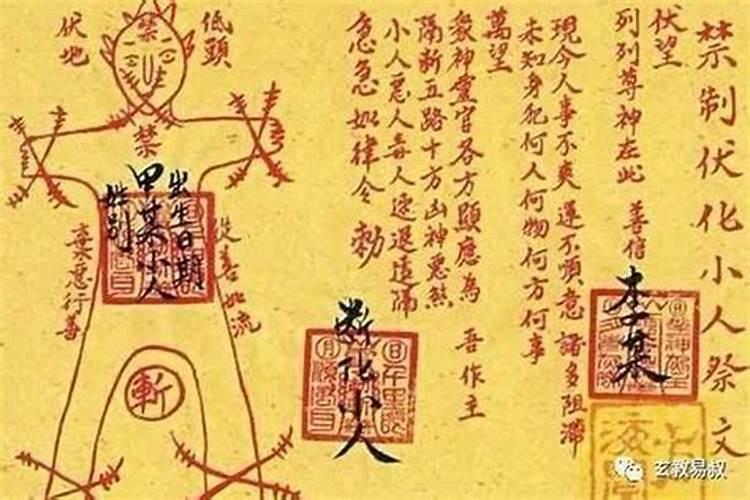 禁制伏化小人祭文
伏望
列列尊神在此 善信 李某
現今人事不爽 運不順意 諸多阻滞
未知身犯何人何物何方何事
萬望
眾神靈官各方顯應為 吾作主
隔斷五路十方凶神惡煞
小人惡人毒人速退遠隔
急急如律令 勅
断化小人
低頭
伏地
禁
禁
出生日期
甲某小人
姓别
從善如流
棄惡行善
斬
玄教易叔